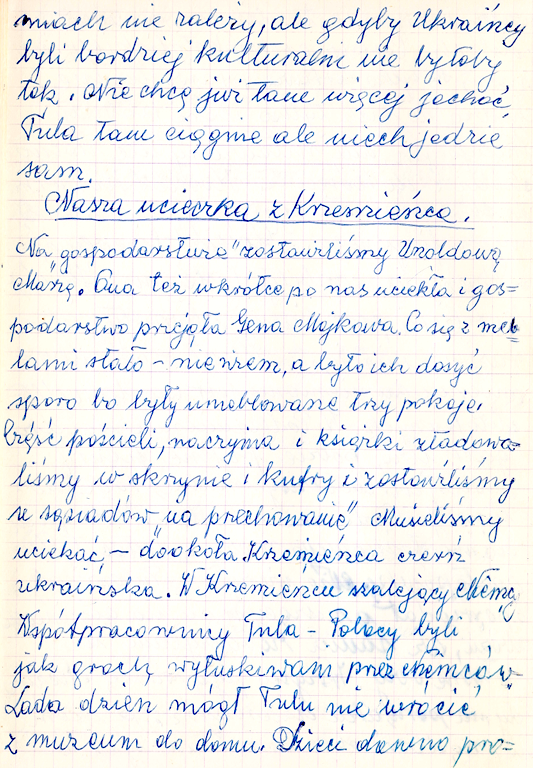 miach nie należy, ale gdyby Ukraińcy
byli bardziej kulturalni nie byłoby
tak. Nie chcę już tam więcej jechać,
Tula tam ciągnie ale niech jedzie
sam.
Nasza ucieczka z Krzemieńca.
Na „gospodarstwie" zostawiliśmy
Marię. Ona też wkrótce po nas uciekła i gos=
podarstwo przejęła Gena Majkowa. Co się z meb=
lami stało – nie wiem, a było ich dosyć
sporo bo były umeblowane trzy pokoje.
Część pościeli, naczynia i książki zładowa=
liśmy w skrzynie i kufry i zostawiliśmy
u sąsiadów „na przechowanie" Musieliśmy
uciekać, – dookoła Krzemieńca czerń
ukraińska. W Krzemieńcu szalejący Niemcy
Współpracownicy Tula – Polacy byli
jak groch, wyłuskiwani przez Niemców.
Lada dzień mógł Tulu nie wrócić
z muzeum do domu. Dzieci dawno pro=